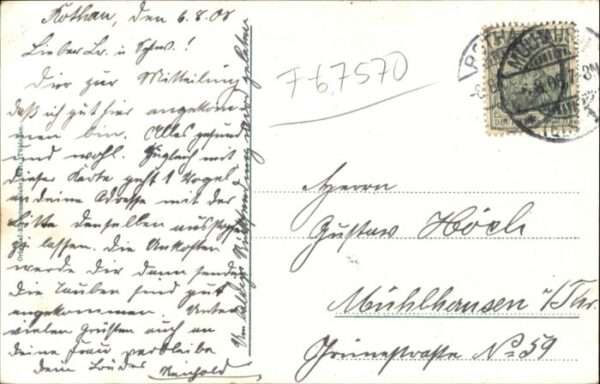 Rothau, den 6.8.08
Lieber Br. u Schw.!
Dir zur Mitteilung
daß ich gut hier angekom
men bin. Alles gesund
und wohl. Zugleich mit
dieser Karte geht 1 Vogel
an deine Adresse mit der
Bitte denselben ausstopfen
zu lassen. Die Unkosten
werde Dir dann senden
die Tauben sind gut
angekommen. Unter
vielen Grüßen auch an
deine Frau verbleibe
dein Bruder Reinhold
Um baldige Rücksendung wird gebeten
F67570
ROTHAU
Herrn
Gustav Höch
Mühlhausen i/Thr.
Grünestraße No 59